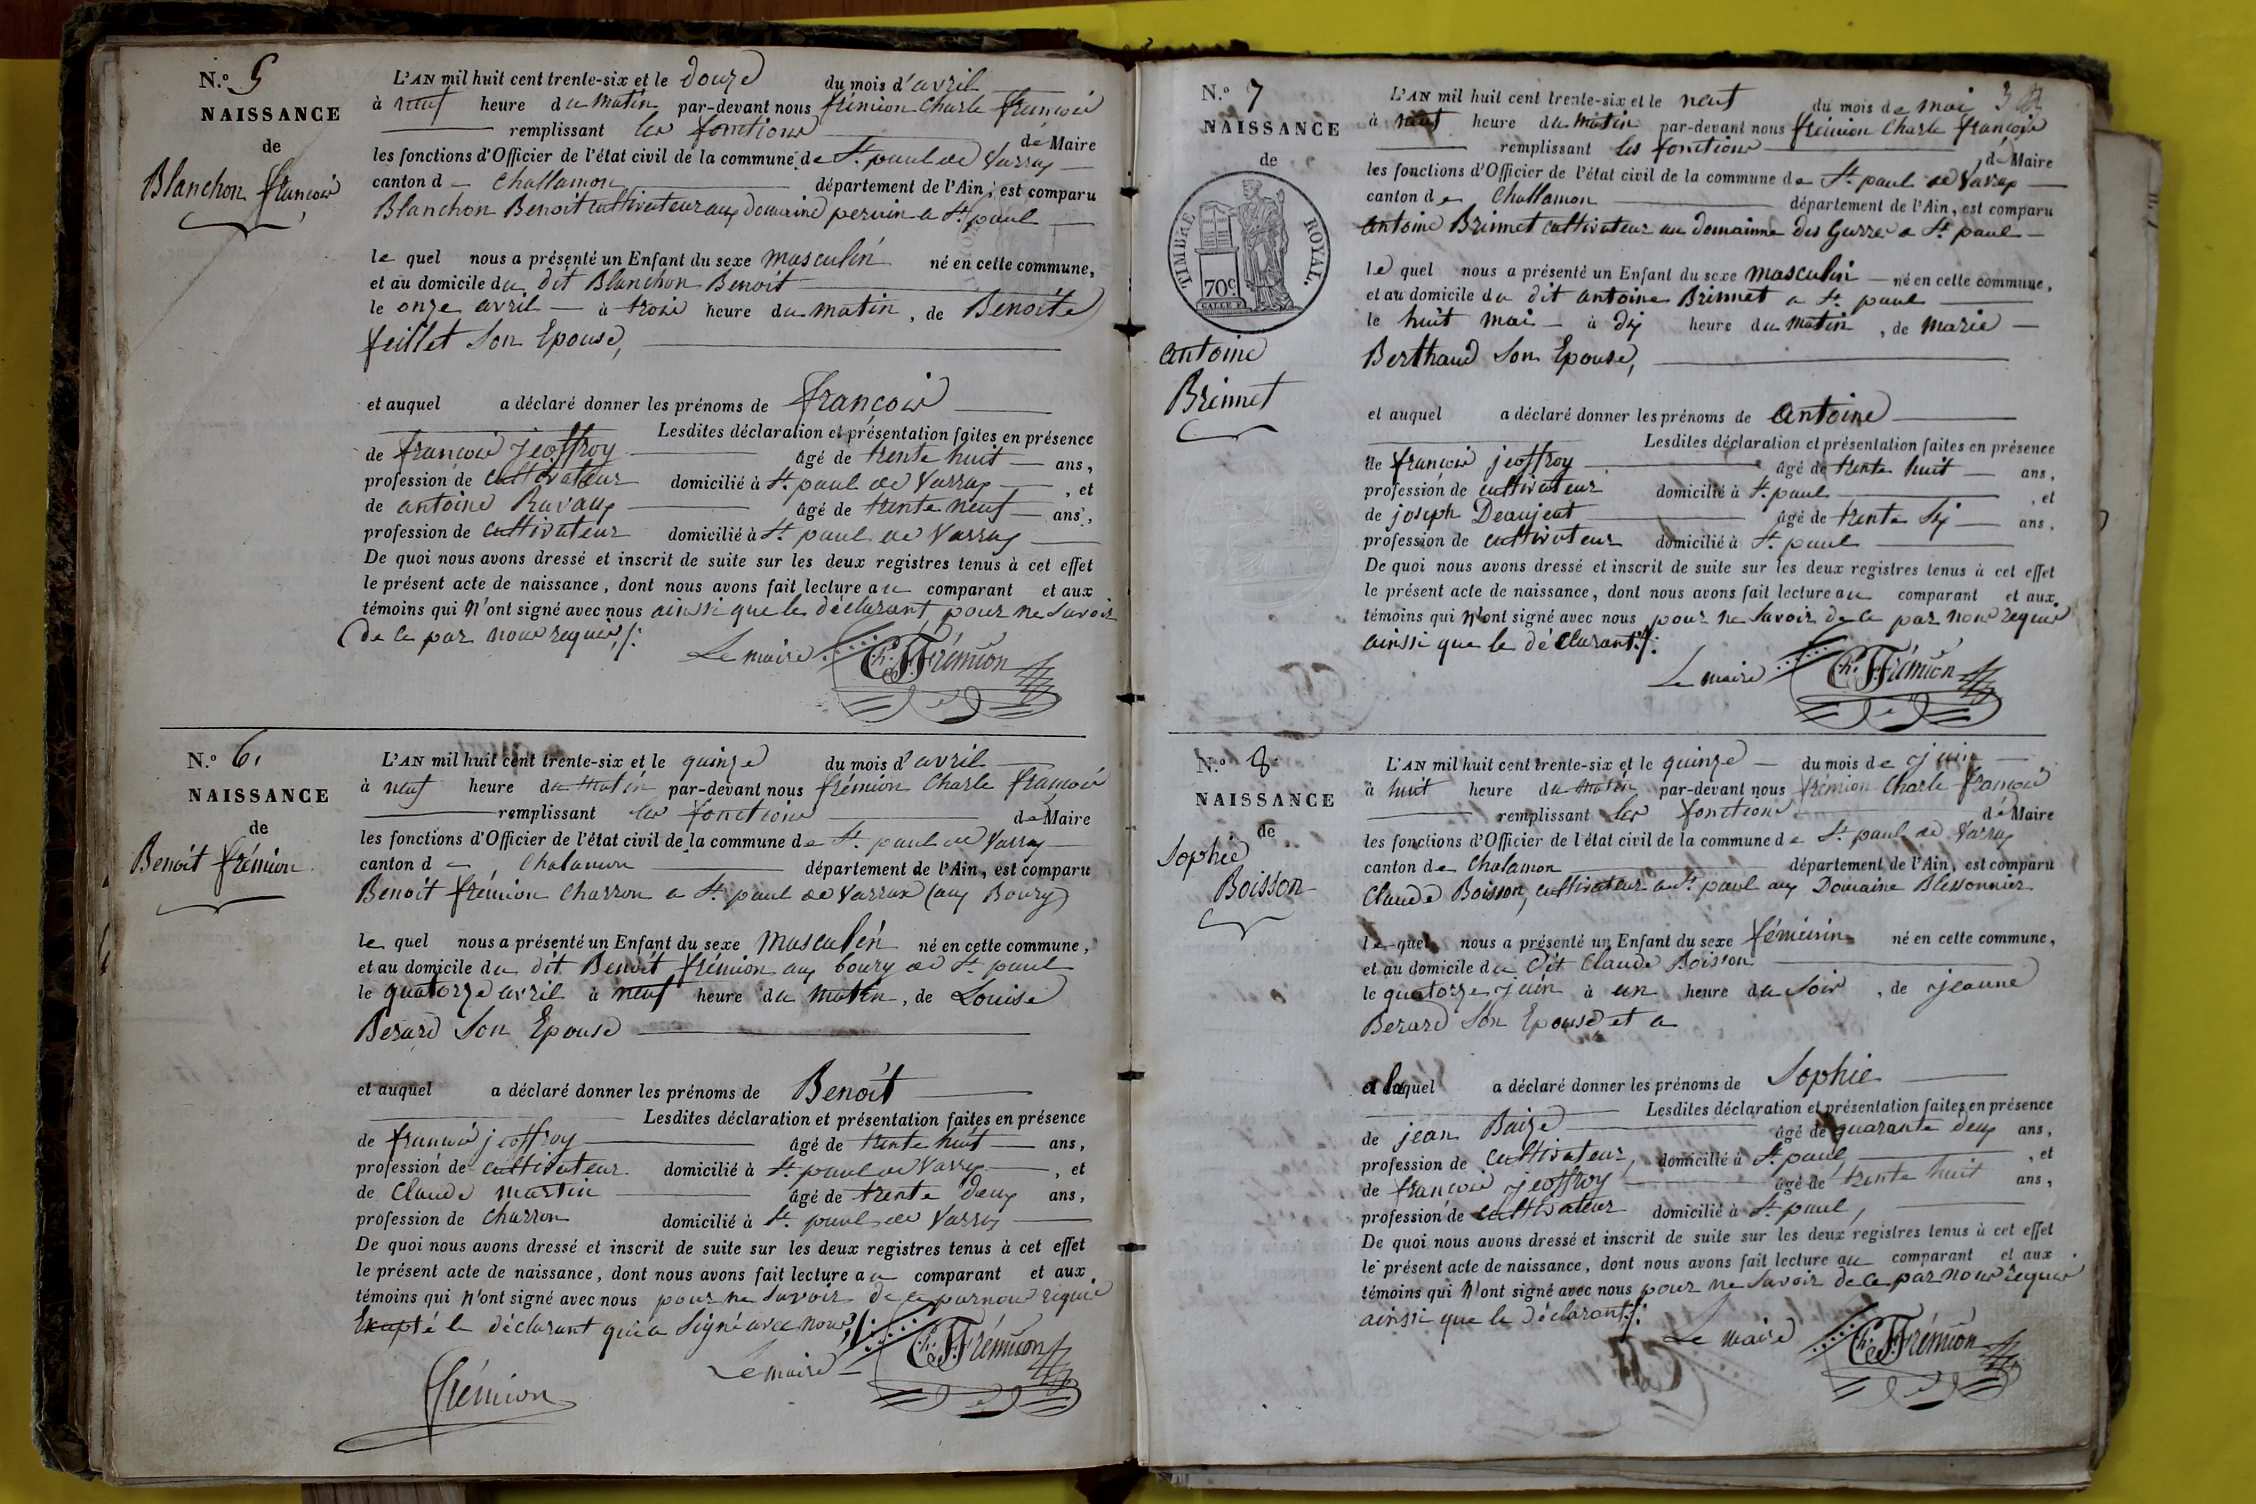 N.º 5
NAISSANCE
de
Blanchon françois
L'AN mil huit cent trente-six et le douze du mois d'avril
à neuf heure du matin par-devant nous frémion Charle françois
remplissant les fonctions de Maire
les fonctions d'Officier de l'état civil de la commune de St. paul de Varax
canton d Challamon département de l'Ain, est comparu
Blanchon Benoit cultivateur aux domaine peruin a St. paul
le quel nous a présenté un Enfant du sexe masculin né en cette commune,
et au domicile du dit Blanchon Benoit
le onze avril à trois heure du matin, de Benoite
feillet Son Epouse,
et auquel a déclaré donner les prénoms de françois
Lesdites déclaration et présentation faites en présence
de françois jeoffroy âgé de trente huit ans,
profession de cultivateur domicilié à St. paul de Varax, et
de antoine Ravaux âgé de trente neuf ans,
profession de cultivateur domicilié à St. paul de Varax
De quoi nous avons dressé et inscrit de suite sur les deux registres tenus à cet effet
le présent acte de naissance, dont nous avons fait lecture au comparant et aux
témoins qui N'ont signé avec nous ainsi que le déclarant pour ne savoir
de ce par nous requis ./.
Le maire Ch. F. Frémion
N.º 6
NAISSANCE
de
Benoit frémion
L'AN mil huit cent trente-six et le quinze du mois d'avril
à neuf heure du matin par-devant nous frémion Charle françois
remplissant les fonctions de Maire
les fonctions d'Officier de l'état civil de la commune de St. paul de Varax
canton d Chalamon département de l'Ain, est comparu
Benoit frémion Charron a St. paul de Varax (aux Bourg)
le quel nous a présenté un Enfant du sexe Masculin né en cette commune,
et au domicile du dit Benoit frémion aux bourg de St. paul
le quatorze avril à neuf heure du matin, de Louise
Berard Son Epouse
et auquel a déclaré donner les prénoms de Benoit
Lesdites déclaration et présentation faites en présence
de françois jeoffroy âgé de trente huit ans,
profession de cultivateur domicilié à St. paul de Varax, et
de Claude martin âgé de trente deux ans,
profession de charron domicilié à St. paul de Varax
De quoi nous avons dressé et inscrit de suite sur les deux registres tenus à cet effet
le présent acte de naissance, dont nous avons fait lecture au comparant et aux
témoins qui N'ont signé avec nous pour ne savoir de ce par nous requis
Exepté le déclarant qui a Signé avec nous ./.
Le maire Ch. F. Frémion
frémion
N.º 7
NAISSANCE
de
TIMBRE ROYAL.
70c
antoine
Brinnet
L'AN mil huit cent trente-six et le neuf du mois de mai 3
à neuf heure du matin par-devant nous frémion Charle françois
remplissant les fonctions de Maire
les fonctions d'Officier de l'état civil de la commune de St. paul de Varax
canton de Challamon département de l'Ain, est comparu
antoine Brinnet cultivateur au domainne des Gurre a St. paul
le quel nous a présenté un Enfant du sexe masculin né en cette commune,
et au domicile du dit antoine Brinnet a St. paul
le huit mai à dix heure du matin, de marie
Berthaud Son Epouse,
et auquel a déclaré donner les prénoms de antoine
Lesdites déclaration et présentation faites en présence
de françois jeoffroy âgé de trente huit ans,
profession de cultivateur domicilié à St. paul, et
de joseph Deaujeat âgé de trente Six ans,
profession de cultivateur domicilié à St. paul
De quoi nous avons dressé et inscrit de suite sur les deux registres tenus à cet effet
le présent acte de naissance, dont nous avons fait lecture au comparant et aux
témoins qui N'ont signé avec nous pour ne savoir de ce par nous requis
ainsi que le déclarant ./.
Le maire Ch. F. Frémion
N.º 8
NAISSANCE
de
Sophie
Boisson
L'AN mil huit cent trente-six et le quinze du mois de juin
à huit heure du matin par-devant nous frémion Charle françois
remplissant les fonctions de Maire
les fonctions d'Officier de l'état civil de la commune de St. paul de Varax
canton de Chalamon département de l'Ain, est comparu
Claude Boisson, cultivateur a St. paul aux Domaine Blissonnier
le quel nous a présenté un Enfant du sexe féminin né en cette commune,
et au domicile du dit Claude Boisson
le quatorze juin à un heure du Soir, de jeanne
Berard Son Epouse et a
a laquel a déclaré donner les prénoms de Sophie
Lesdites déclaration et présentation faites en présence
de jean Baize âgé de quarante deux ans,
profession de cultivateur, domicilié à St. paul, et
de françois jeoffroy âgé de trente huit ans,
profession de cultivateur domicilié à St. paul,
De quoi nous avons dressé et inscrit de suite sur les deux registres tenus à cet effet
le présent acte de naissance, dont nous avons fait lecture au comparant et aux
témoins qui N'ont signé avec nous pour ne savoir de ce par nous requis
ainsi que le déclarant ./.
Le maire Ch. F. Frémion